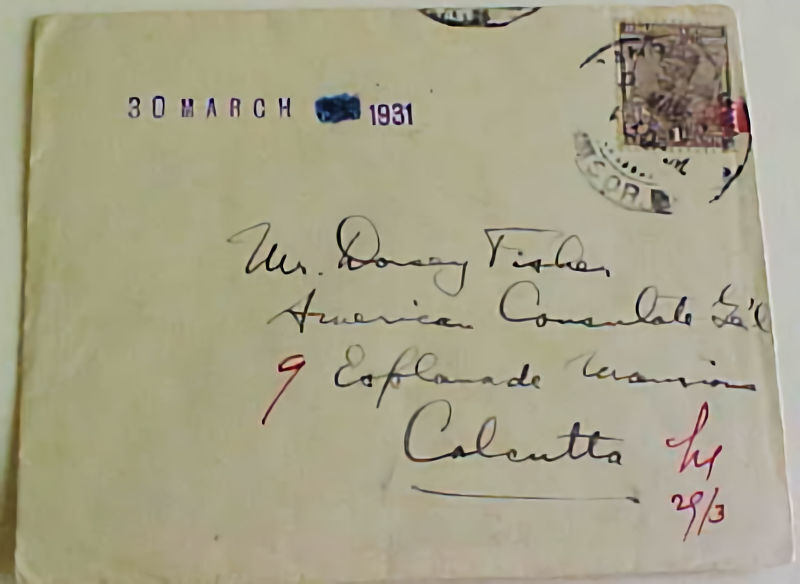 30 MARCH 1931
Mr. Dorsey Fisher
American Consulate Ge'l
9 Esplanade Mansions
Calcutta
29/3